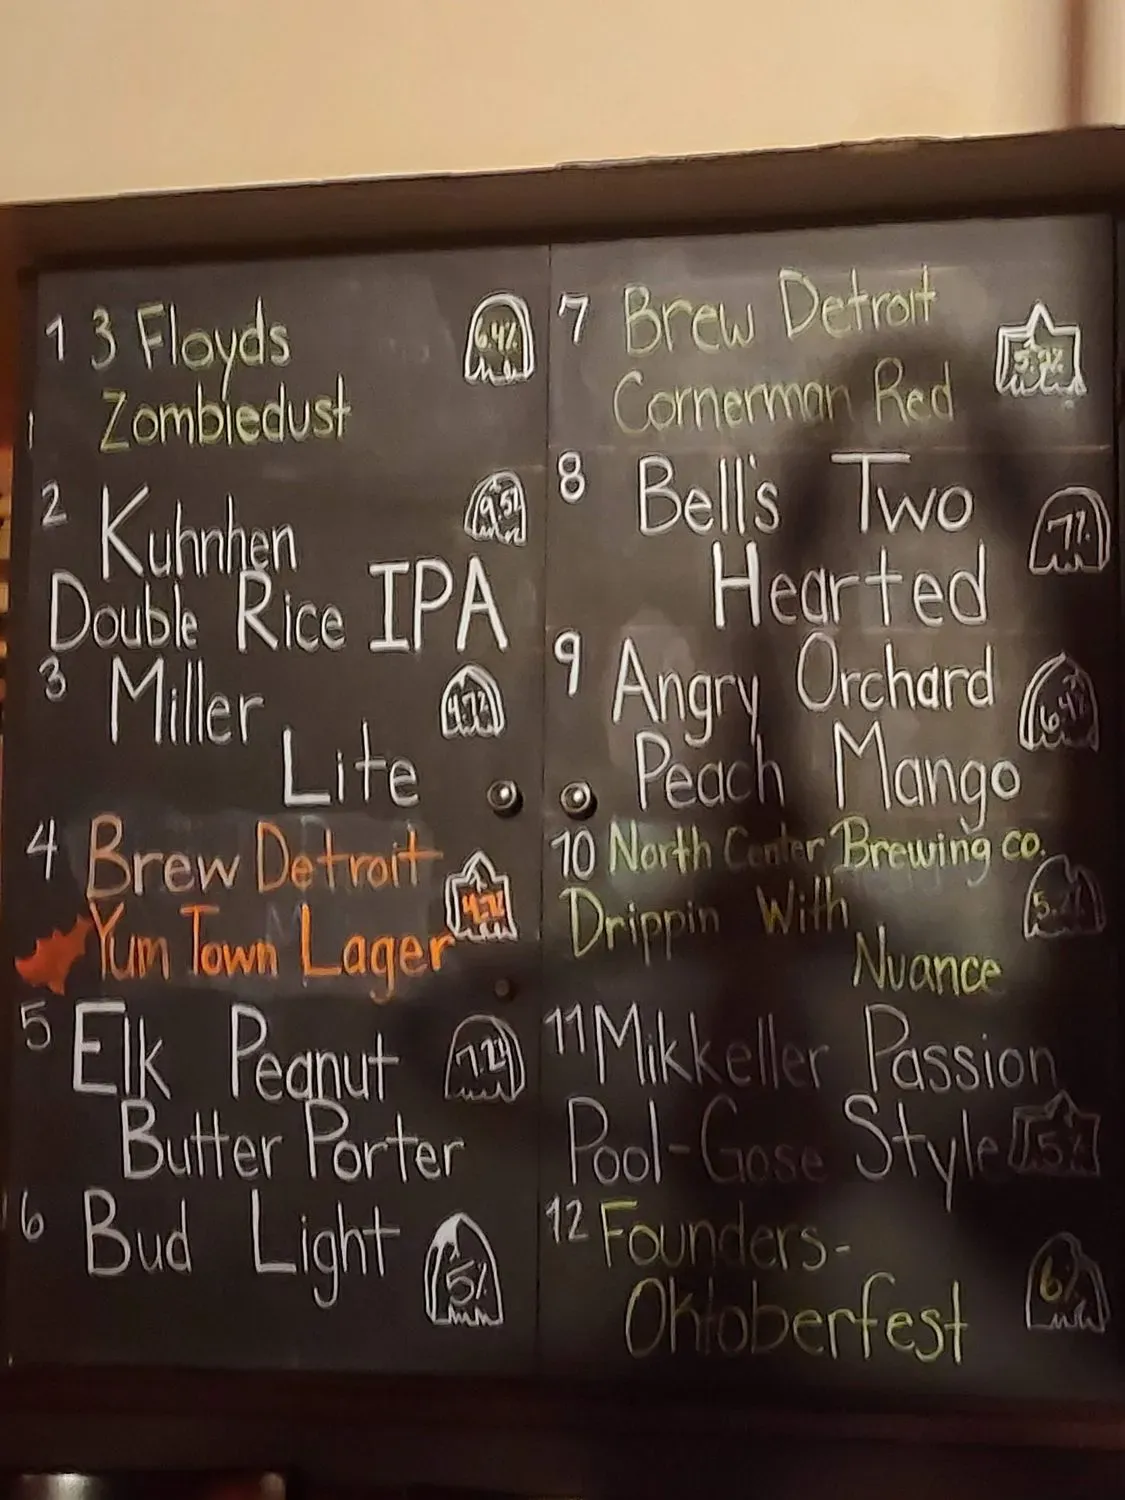 1 3 Floyds 6.4%
Zombiedust
2 Kuhnhen 9.5%
Double Rice IPA
3 Miller 4.7%
Lite
4 Brew Detroit 4.7%
Yum Town Lager
5 Elk Peanut
Butter Porter
6 Bud Light 5%
7 Brew Detroit
Cornerman Red
8 Bell's Two 7%
Hearted
9 Angry Orchard 6.4%
Peach Mango
10 North Center Brewing co.
Drippin With 5.2%
Nuance
11 Mikkeller Passion
Pool-Gose Style 5%
12 Founders- 6%
Oktoberfest